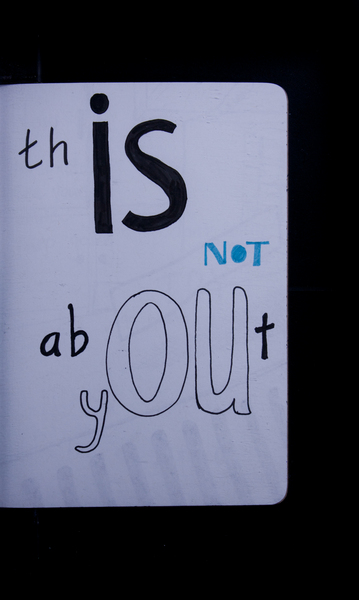 thIS
NOT
abOUt
y